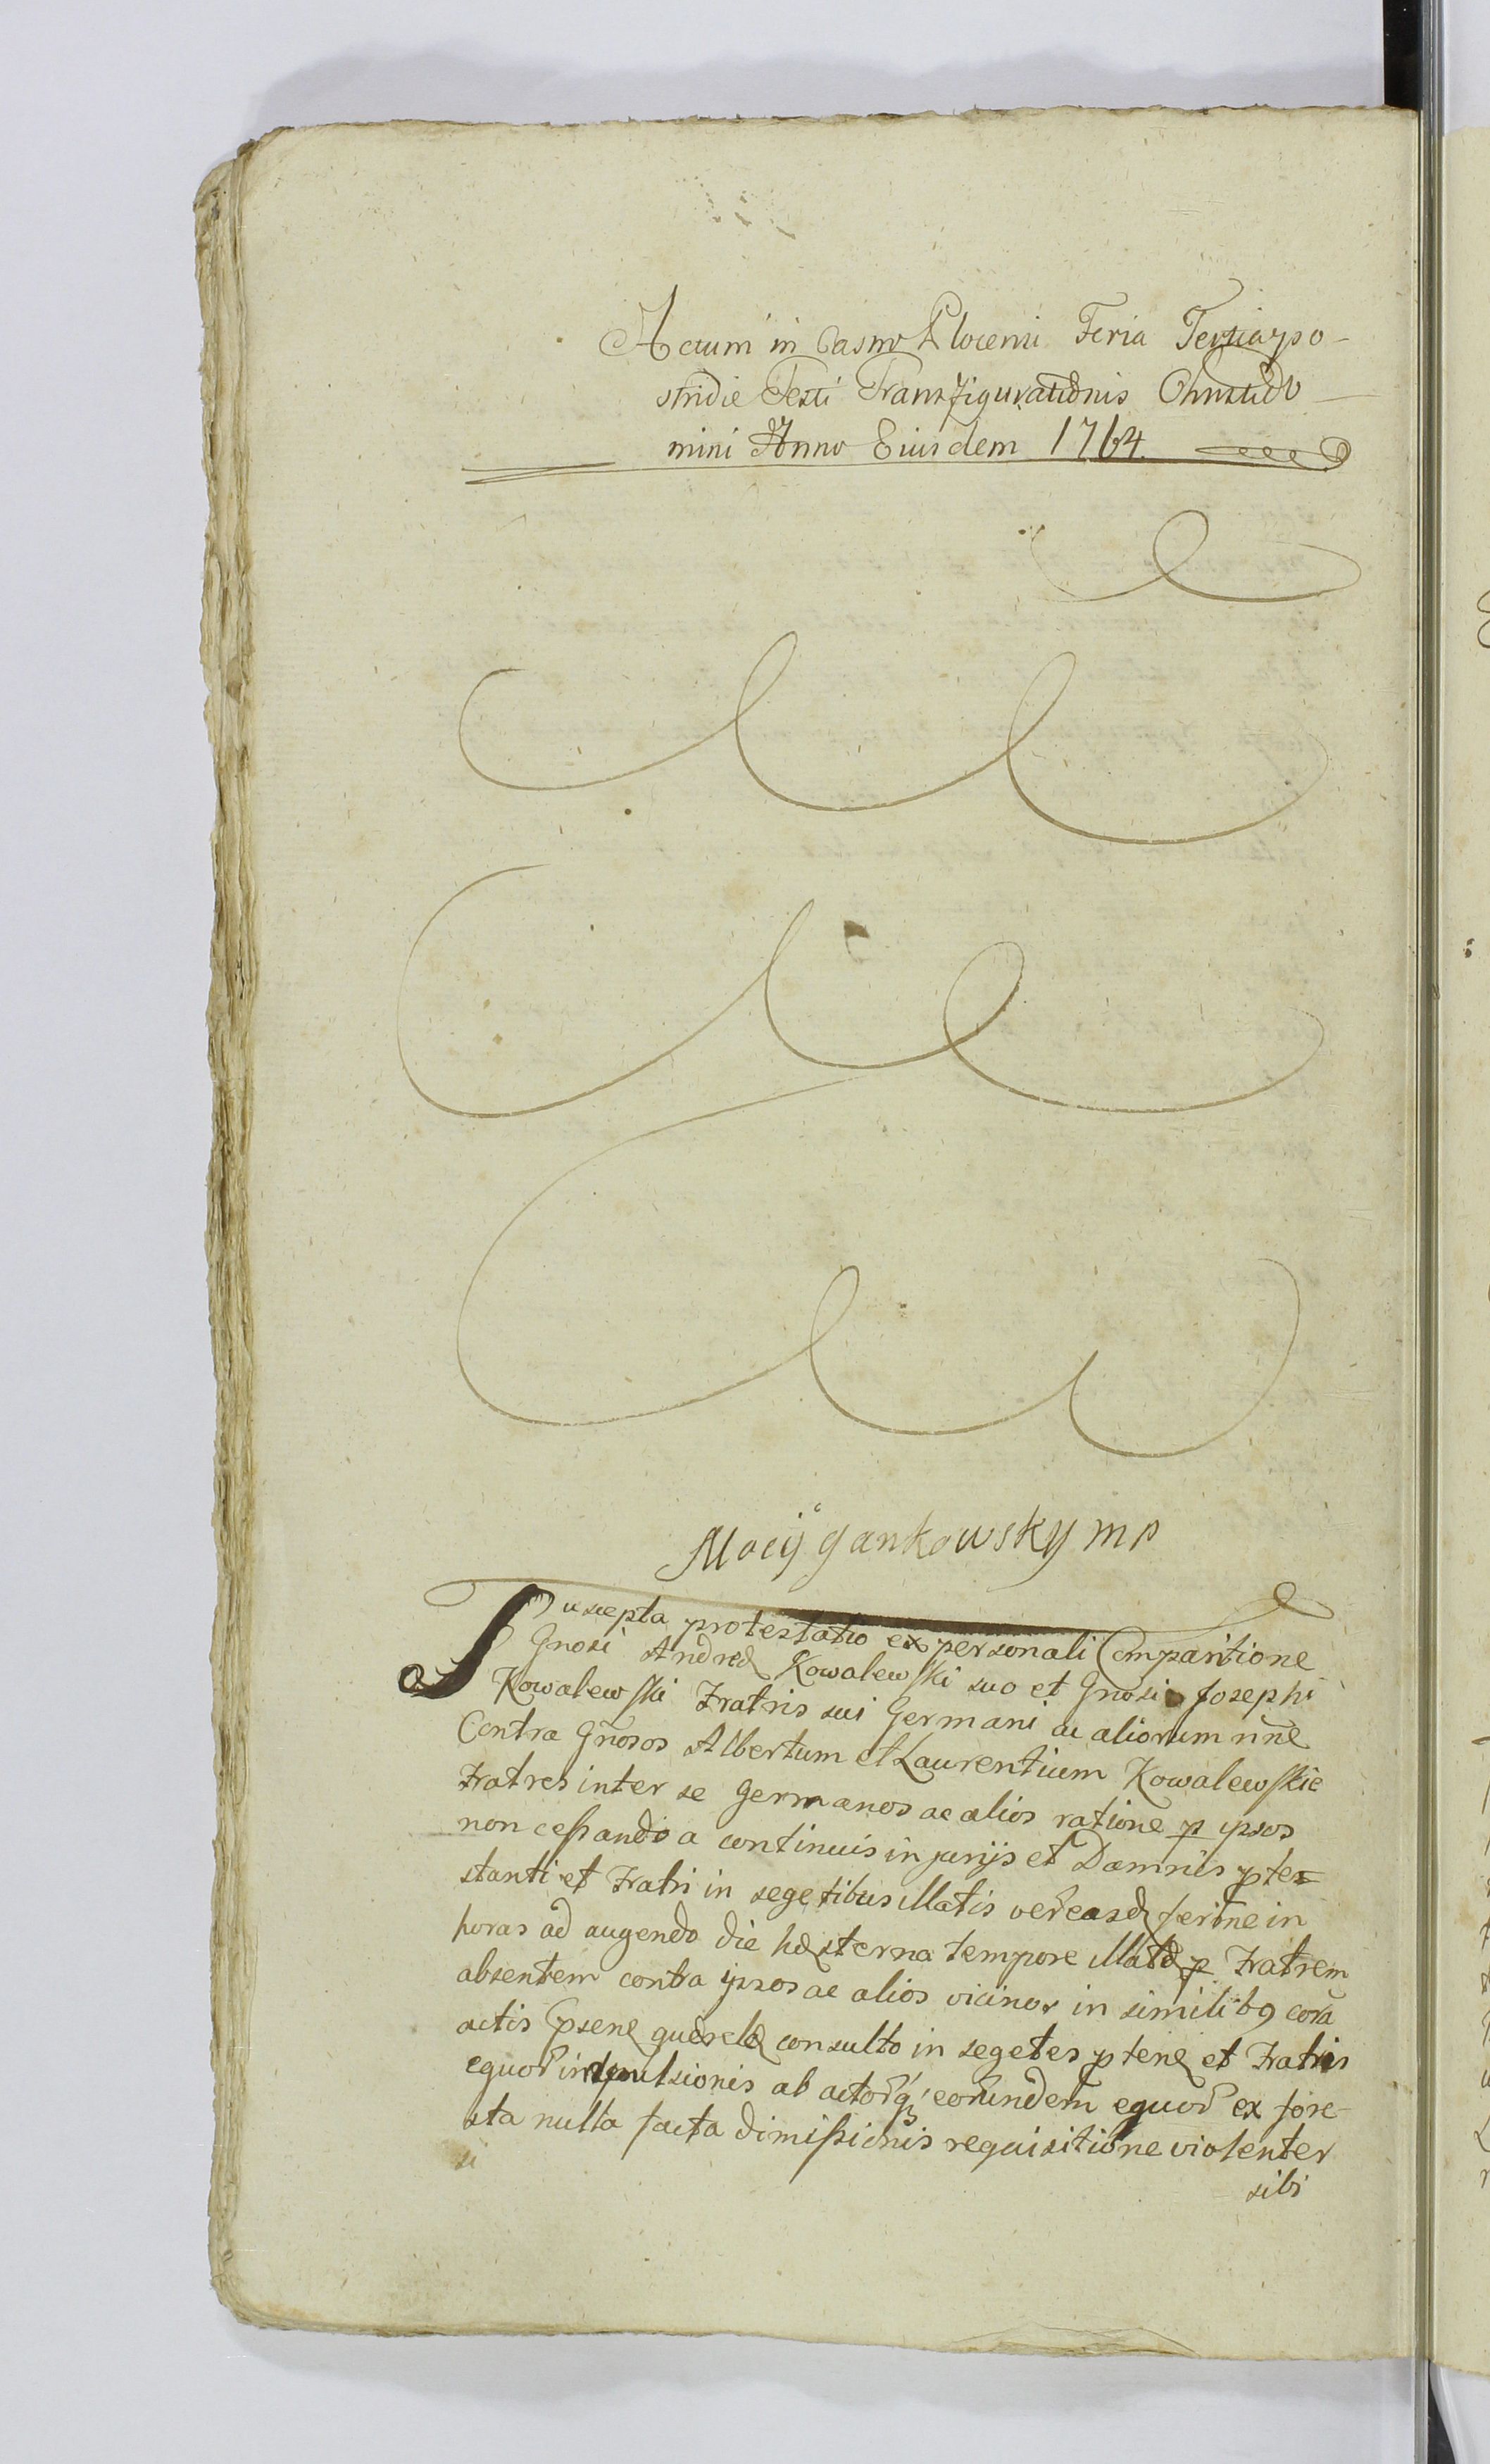 Actum in Castro Plocensi Feria Tertia po-
stridie Festi Transfigurationis Christi Do-
mini Anno Eiusdem 1764.
Macij Jankowsky mp
Suscepta protestatio ex personali Comparitione
Gnosi Andreæ Kowalewski suo et Gnosi Josephi
Kowalewski Fratris sui Germani ac aliorum nñe
Contra Gnosos Albertum et Laurentium Kowalewskie
Fratres inter se Germanos ac alios ratione p ipsos
non cessando a continuis injurijs et Damnis ptes=
stanti et Fratri in segetibus illatis
horas ad augendo die hæsterna tempore illatæ p Fratrem
absentem contra ipsos ac alios vicinos in similibg corã
actis psenę querelæ consulto in segetes ptenę et Fratris
equor impulsionis ab actorq eorundem equor ex fore-
sta nulla facta dimissionis requisitione violenter
sibi